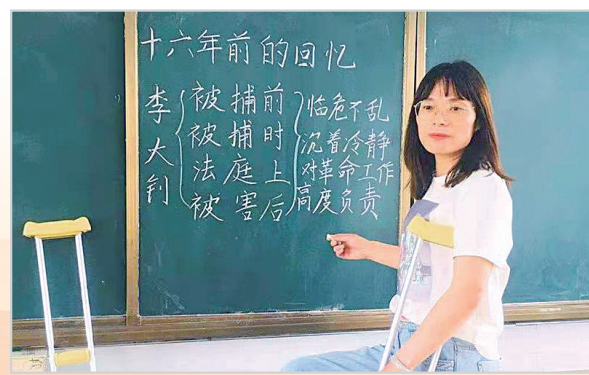 十六年前的回忆
李大钊
被捕前
被捕时
法庭上
被害后
临危不乱
沉着冷静
对革命工作
高度负责